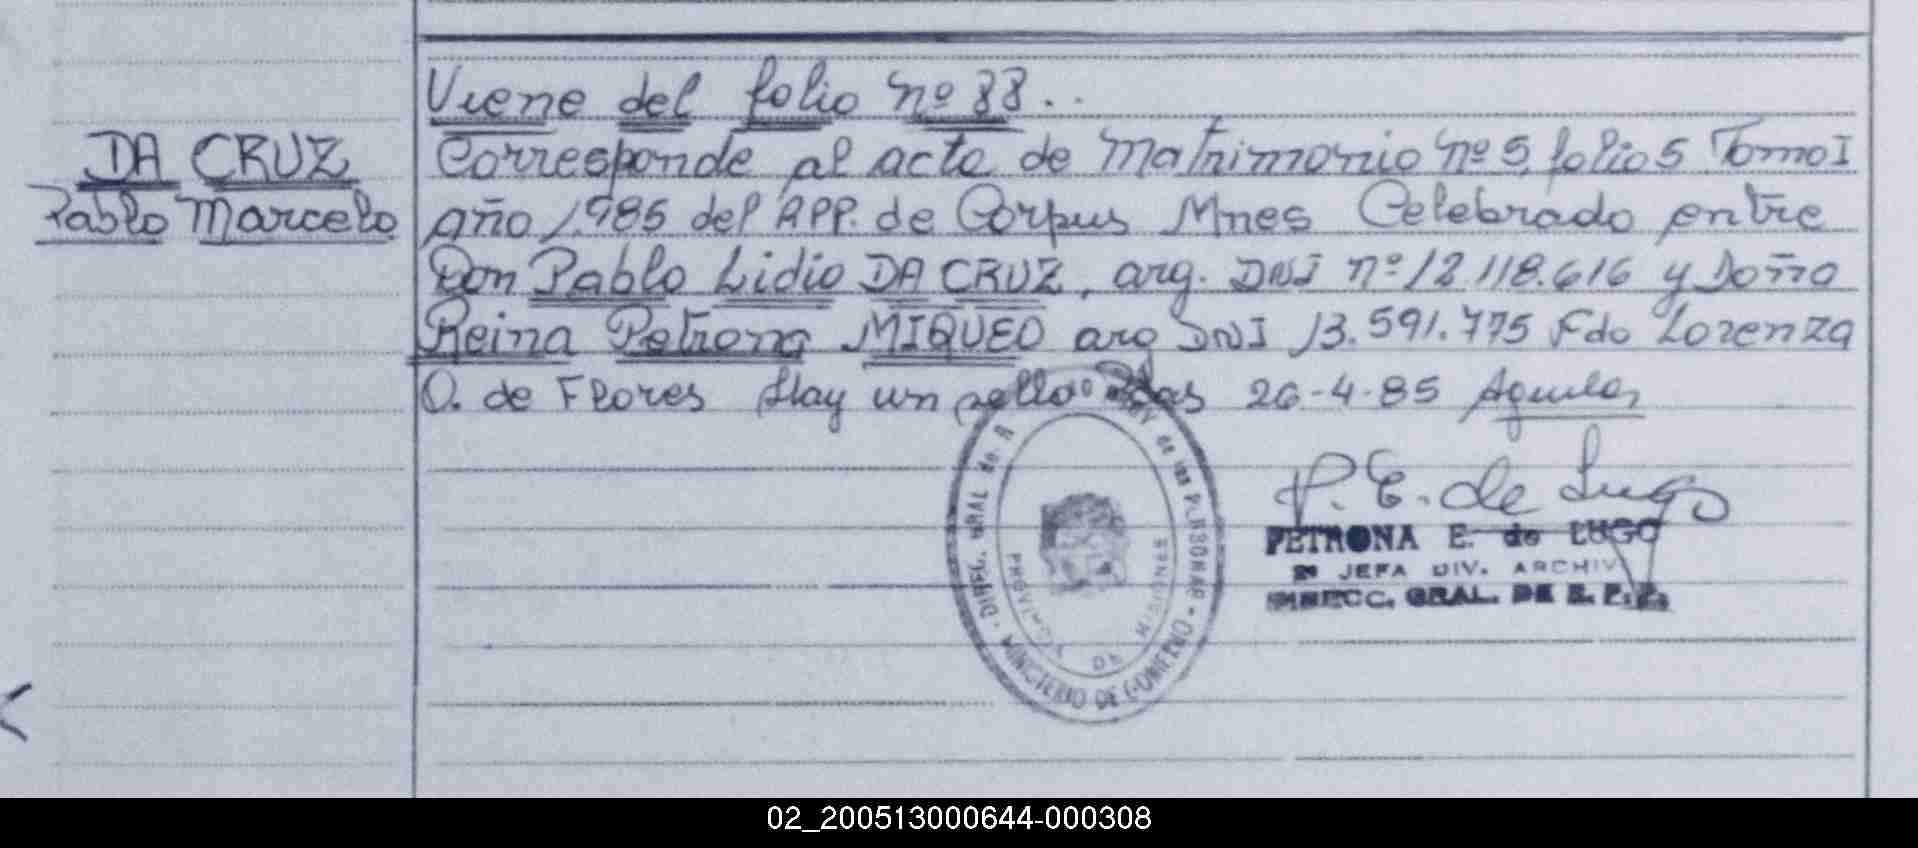 Viene del folio nº 88..
DA CRUZ
Pablo Marcelo
Corresponde al acta de Matrimonio nº 5, folio 5 Tomo I
año 1.985 del APP. de Corpus Mnes Celebrado entre
Don Pablo Lidio DA CRUZ, arg. DNI nº 12.118.616 y Doña
Reina Petrona MIQUEO arg DNI 13.591.775 Fdo Lorenza
O. de Flores Hay un sello 26-4-85 Aguilar
P. E. de Lugo
PETRONA E. de LUGO
JEFA DIV. ARCHIV
DIRECC. GRAL. DE R. P. P.
DIREC. GRAL de de las PERSONAS - MINISTERIO DE GOBIERNO
PROVINCIA DE MISIONES
02_200513000644-000308